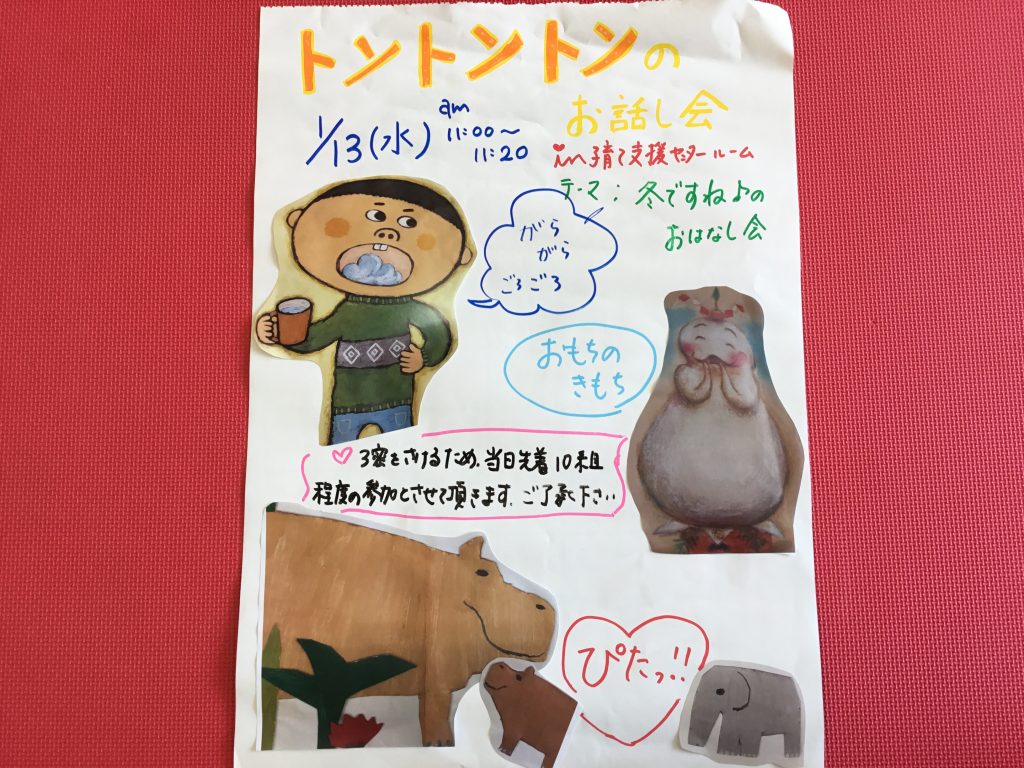 トントントンの
お話し会
1/13(水) am 11:00〜
11:20
in 子育て支援センタールーム
テーマ：冬ですね♪の
おはなし会
がら
がら
ごろごろ
おもちの
きもち
♡3密をさけるため、当日先着10組
程度の参加とさせて頂きます。ご了承下さい
ぴたっ!!